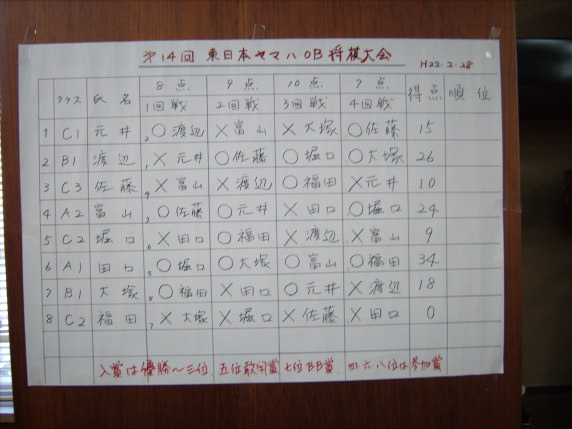 第14回 東日本ヤマハOB将棋大会
H22.2.28
8点 9点 10点 7点
クラス 氏名 1回戦 2回戦 3回戦 4回戦 得点 順位
1 C1 元井 2 ○渡辺 ×富山 ×大塚 ○佐藤 15
2 B1 渡辺 1 ×元井 ○佐藤 ○堀口 ○大塚 26
3 C3 佐藤 4 ×富山 ×渡辺 ○福田 ×元井 10
4 A2 富山 3 ○佐藤 ○元井 ×田口 ○堀口 24
5 C2 堀口 6 ×田口 ○福田 ×渡辺 ×富山 9
6 A1 田口 5 ○堀口 ○大塚 ○富山 ○福田 34
7 B1 大塚 8 ○福田 ×田口 ○元井 ×渡辺 18
8 C2 福田 7 ×大塚 ×堀口 ×佐藤 ×田口 0
入賞は優勝〜三位 五位敢闘賞 七位BB賞 四・六・八位は参加賞